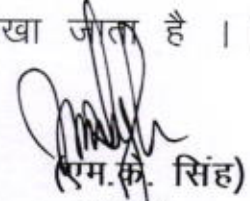 खा जाता है ।
(एम.के. सिंह)